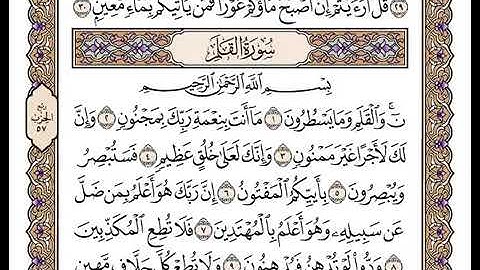 قُلْ أَرَءَيْتُمْ إِنْ أَصْبَحَ مَآؤُكُمْ غَوْرًا فَمَن يَأْتِيكُم بِمَآءٍ مَّعِينٍۭ ٣٠
سُورَةُ القَلَمِ
بِسْمِ ٱللَّهِ ٱلرَّحْمَٰنِ ٱلرَّحِيمِ
نٓ ۚ وَٱلْقَلَمِ وَمَا يَسْطُرُونَ ١ مَآ أَنتَ بِنِعْمَةِ رَبِّكَ بِمَجْنُونٍ ٢ وَإِنَّ
لَكَ لَأَجْرًا غَيْرَ مَمْنُونٍ ٣ وَإِنَّكَ لَعَلَىٰ خُلُقٍ عَظِيمٍ ٤ فَسَتُبْصِرُ
وَيُبْصِرُونَ ٥ بِأَييِّكُمُ ٱلْمَفْتُونُ ٦ إِنَّ رَبَّكَ هُوَ أَعْلَمُ بِمَن ضَلَّ
عَن سَبِيلِهِۦ وَهُوَ أَعْلَمُ بِٱلْمُهْتَدِينَ ٧ فَلَا تُطِعِ ٱلْمُكَذِّبِينَ
٨ وَدُّوا۟ لَوْ تُدْهِنُ فَيُدْهِنُونَ ٩ وَلَا تُطِعْ كُلَّ حَلَّافٍ مَّهِينٍ
ربع
الحزب
٥٧